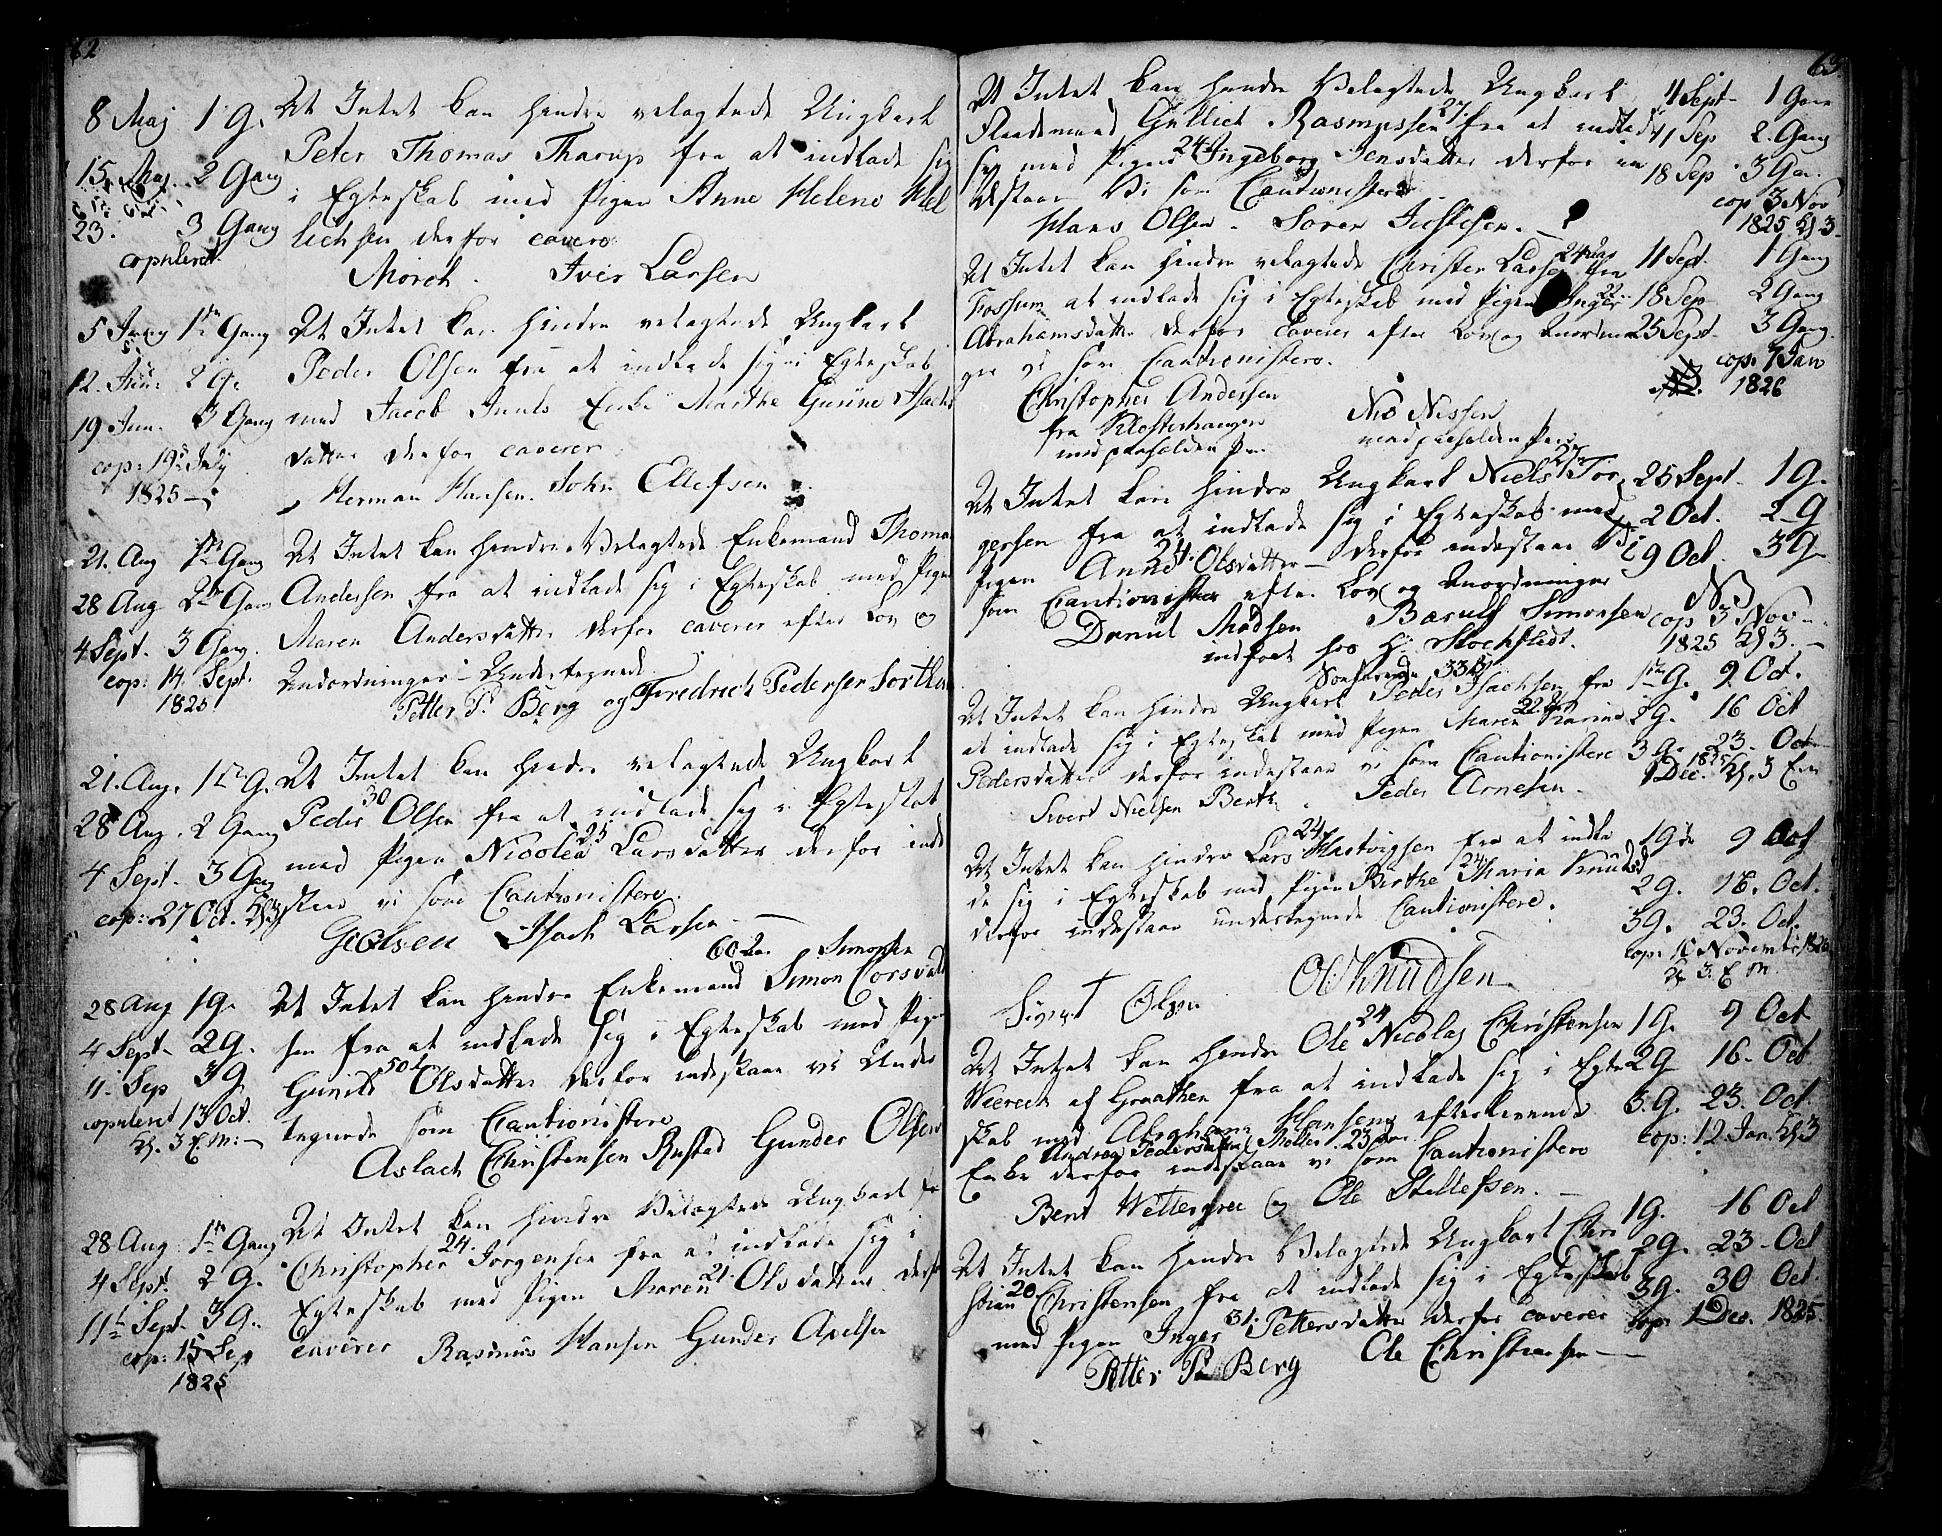 62
8 Maj 1 G. At Intet kan hindre velagtede Ungkarl
Peter Thomas Tharup fra at indlade sig
15. Maj. 2 Gang i Egteskab med Pigen Anne Helene Mel
23. 3 Gang lichsen derfor cavere
copuleret.
Mørch. Iver Larsen
5 Juny 1ste Gang At Intet kan hindre velagtede Ungkarl
Peder Olsen fra at indlade sig i Egteskab
12. Jun: 2 G.
19 Jun. 3 Gang med Jacob Enke Marthe Gurine Isachs
cop: 19de July datter derfor caverer
1825
Herman Hansen. John Ellefsen
21. Aug 1ste Gang At Intet kan hindre Velagtede Enkemand Thomas
28 Aug 2den Gang Andersen fra at indlade sig i Egteskab med Pigen
4 Sept. 3 Gang. Maren Andersdatter derfor caverer efter Lov og
cop: 14 Sept. Andordninger Undertegnede
1825 Petter P. Berg og Fredrich Pedersen
21. Aug. 1ste G. At Intet kan hindre velagtede Ungkarl
30
28 Aug. 2 Gang Peder Olsen fra at indlade sig i Egteskab
25
4 Sept. 3 Gang med Pigen Nicolea Larsdatter derfor inde
cop: 27 Oct. Kl 3 staae vi som Cautionistere.
G Olsen Isach Larsen
60 Simonsen
28 Aug 1 G. At Intet kan hindre Enkemand Simon Corsvald
4 Sept 2 G. sen fra at indlade sig i Egteskab med Pigen
50
11. Sep 3 G Gunild Olsdatter derfor indestaae vi Under
copuleret 13 Oct. tegnede som Cautionistere
Kl. 3 E.M: Aslach Christensen Gunder Olsen
28 Aug 1ste Gang At Intet kan hindre Velagtede Ungkarl
24.
4 Sept. 2 G. Christopher Jørgensen fra at indlade sig i
21.
11te Sept. 3 G. Egteskab med Pigen Maren Olsdatter derfor
cop: 15 Sep caverer Rasmus Hansen Gunder Axelsen
1825
63.
At Intet kan hindre Velagtede Ungkarl 4 Sept 1 Gang
27.
Gullich Rasmussen fra at indlade 11 Sep 2 Gang
24
sig med Pigen Ingeborg Jensdatter derfor in 18 Sep 3 Gan.
destaae Vi som Cautionistere cop 3 Nov
Hans Olsen. Søren Justesen. 1825 Kl 3
24 Aar
At Intet kan hindre velagtede Christen Larsen fra 11 Sept. 1 Gang
22
Fossum at indlade sig i Egteskab med Pigen Inger 18 Sep 2 Gang
Abrahamsdatter derfor Caverer efter Lov og Anordnin 25 Sept 3 Gang
ger vi som Cautionistere. cop. 7 Jan
1826
Christopher Andersen
fra Klosterhaugen Nis Nissen
med paaholden Pen med paaholden Pen
27
At Intet kan hindre Ungkarl Niels Tor 25 Sept 1 G.
gersen fra at indlade sig i Egteskab med 2 Oct. 2 G
24.
Pigen Anne Olsdatter derfor indestaae Vi 9 Oct. 3 G
som Cautionister efter Lov og Anordninger NB
Daniel Madsen Baruld Simonsen cop 3 Nov
indført hos H. Stochfledt. 1825 Kl 3.
33
At Intet kan hindre Ungkarl Peder Isachsen fra 1ste G. 9 Oct.
22
at indlade sig i Egteskab med Pigen Maren Karine 2 G. 16 Oct
Pedersdatter derfor indestaae vi som Cautionistere 3 G. 23. Oct
1825
1 Dec. Kl. 3 E.m
Sivert Nielsen Berth Peder Arnesen.
24
At Intet kan hindre Lars Hartvigsen fra at indla 1 G. 9 Oct
24
de sig i Egteskab med Pigen Birthe Maria Knuds 2 G. 16. Oct.
derfor indestaae undertegnede Cautionistere. 3 G. 23. Oct.
cop: 10 November
Kl. 3. E.M.
Sivert Olsen Ol Knudsen
24
At Intet kan hindre Ole Nicolay Christensen 1 G. 9 Oct
af Graathen fra at indlade sig i Egte 2 G 16. Oct
skab med Abraham Hansens efterlevende 3. G. 23. Oct.
Andrea Pedersdatter Møller 23 Aar
Enke derfor indestaae vi som Cautionistere cop: 12 Jan. Kl 3
Bent Wettergree og Ole Stillefsen.
At Intet kan hindre Velagtede Ungkarl Chri 1 G. 16 Oct
20
stian Christensen fra at indlade sig i Egteskab 2 G. 23 Oct
31.
med Pigen Inger Pettersdatter derfor caverer 3 G. 30 Oct.
cop: 1 Dec. 1825.
Petter P. Berg Ole Christensen